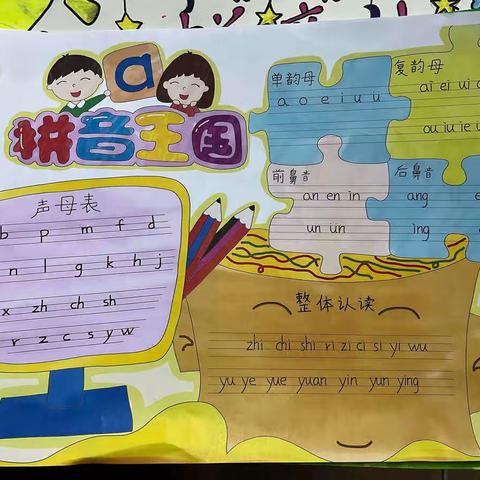 a
拼音王国
声母表
b p m f d
n l g k h j
x zh ch sh
r z c s y w
单韵母
a o e i u ü
复韵母
ai ei ui
ou iu ie
前鼻音
an en in
un ün
后鼻音
ang
ing
整体认读
zhi chi shi ri zi ci si yi wu
yu ye yue yuan yin yun ying